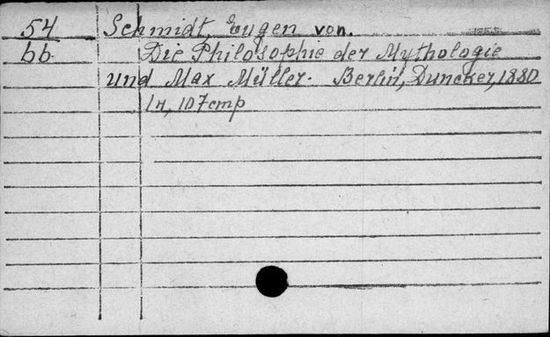 54 Schmidt, Eugen von.
bb. Die Philosophie der Mythologie
und Max Müller. Berlin, Duncker, 1880
107 стр